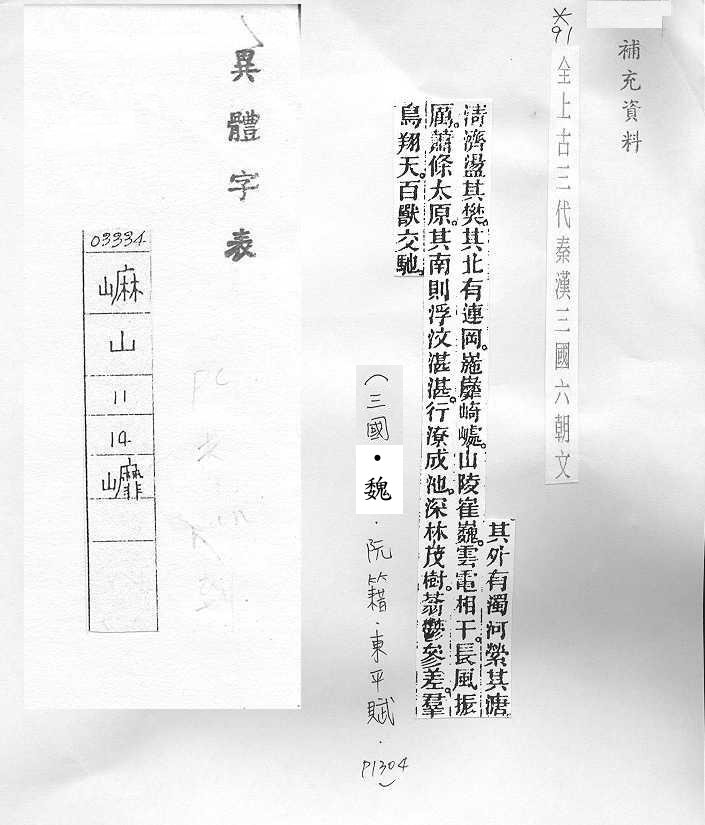 補充資料
※91
全上古三代秦漢三國六朝文
其外有濁河縈其溏
清濟盪其樊。其北有連岡。崎巇。山陵崔巍。雲電相干。長風振
厲。蕭條太原。其南則浮汶湛湛。行潦成池。深林茂樹。蓊鬱參差。羣
鳥翔天。百獸交馳。
（三國•魏．阮籍．東平賦．P1304）
異體字表
03334
山
11
14